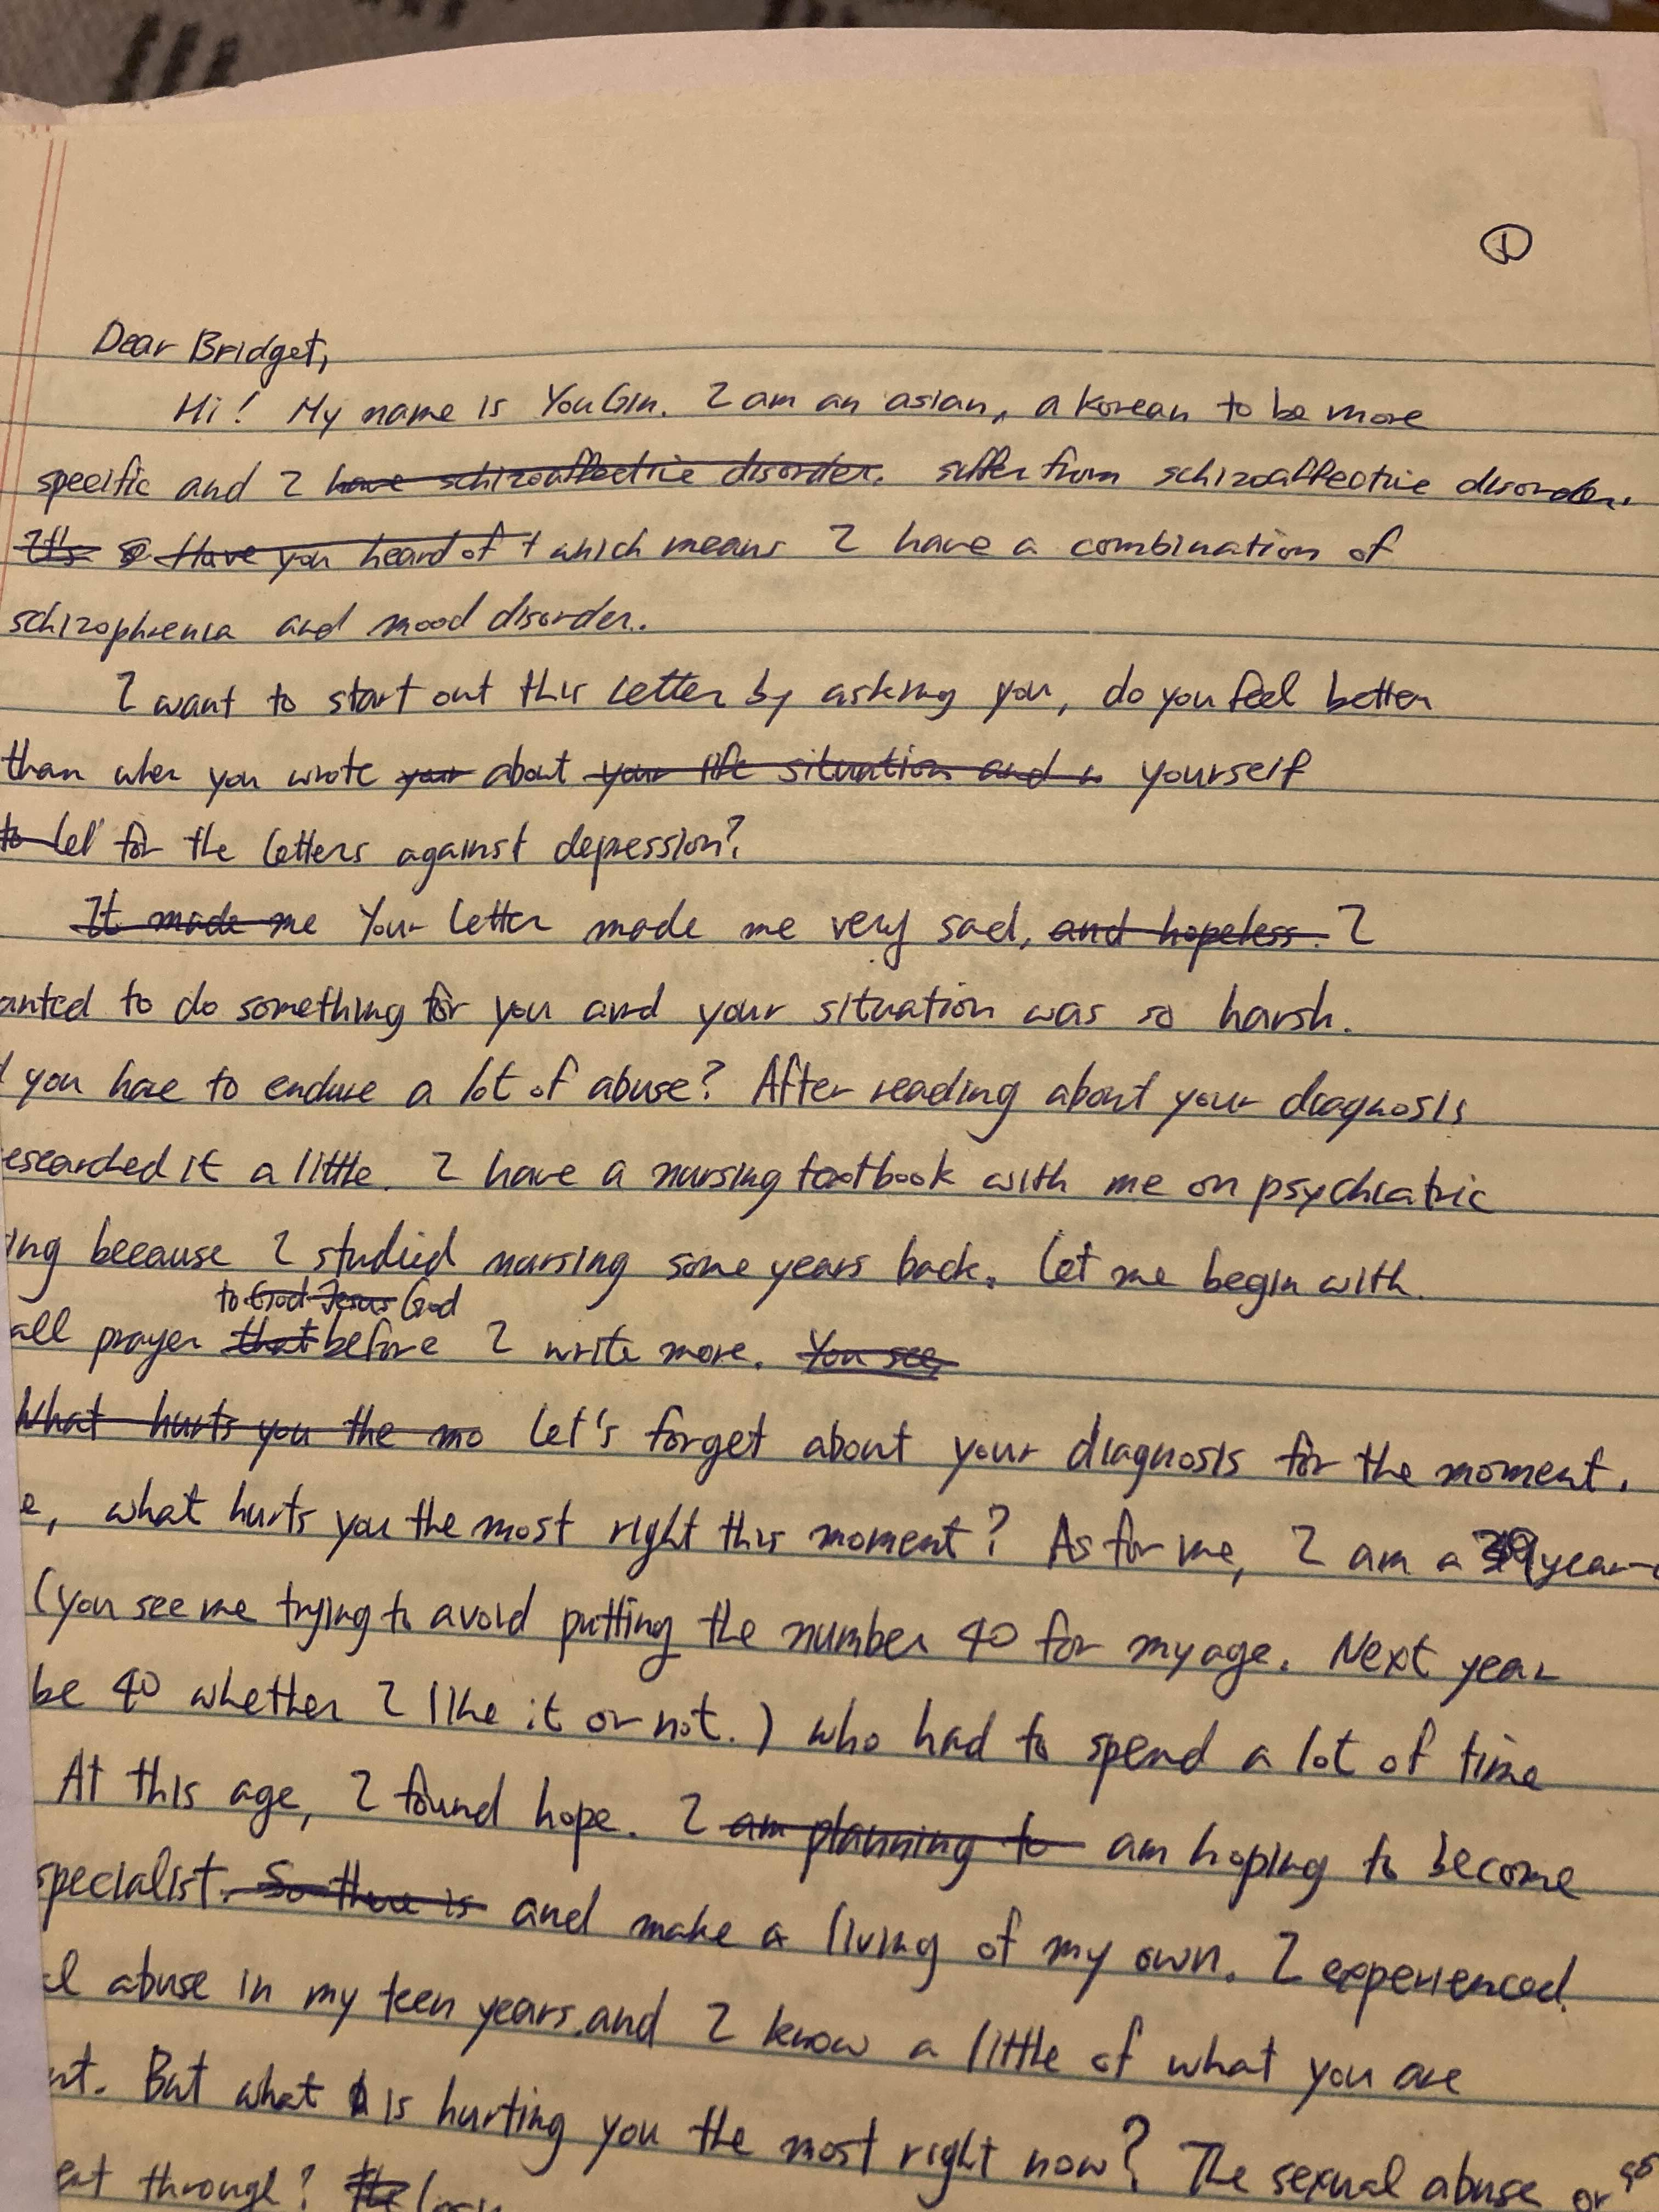 1
Dear Bridget,
Hi! My name is YouGin. I am an asian, a korean to be more
specific and I have schizoaffective disorder. suffer from schizoaffective disorder.
It's Have you heard of which means I have a combination of
schizophrenia and mood disorder.
I want to start out this letter by asking you, do you feel better
than when you wrote your about your life situation and yourself
to let for the letters against depression?
It made me Your letter made me very sad, and hopeless. I
anted to do something for you and your situation was so harsh.
you have to endure a lot of abuse? After reading about your diagnosis
esearched it a little. I have a nursing textbook with me on psychiatric
ing because I studied nursing some years back. Let me begin with
to God Jesus God
all prayer that before I write more. You see,
What hurts you the mo Let's forget about your diagnosis for the moment.
e, what hurts you the most right this moment? As for me, I am a 39 year-
(you see me trying to avoid putting the number 40 for my age. Next year
be 40 whether I like it or not.) who had to spend a lot of time
At this age, I found hope. I am planning to am hoping to become
specialist. So there is and make a living of my own. I experienced
l abuse in my teen years and I know a little of what you are
nt. But what is hurting you the most right now? The sexual abuse or
ent through? the